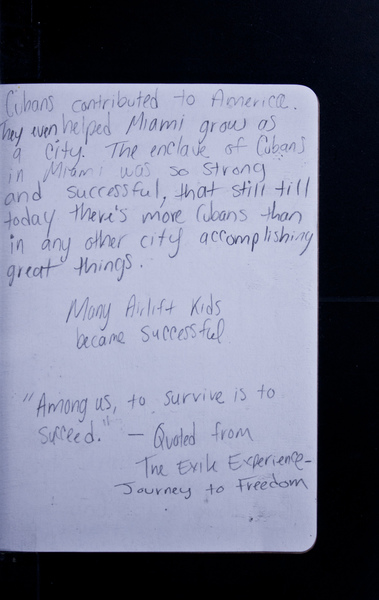 Cubans contributed to America.
They even helped Miami grow as
a city. The enclave of Cubans
in Miami was so strong
and successful, that still till
today there's more Cubans than
in any other city accomplishing
great things.
Many Airlift Kids
became successful
"Among us, to survive is to
succeed." — Quoted from
The Exile Experience-
Journey to Freedom